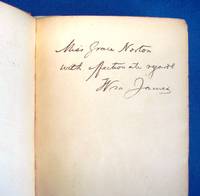 Miss Grace Norton
with affectionate regards
Wm James